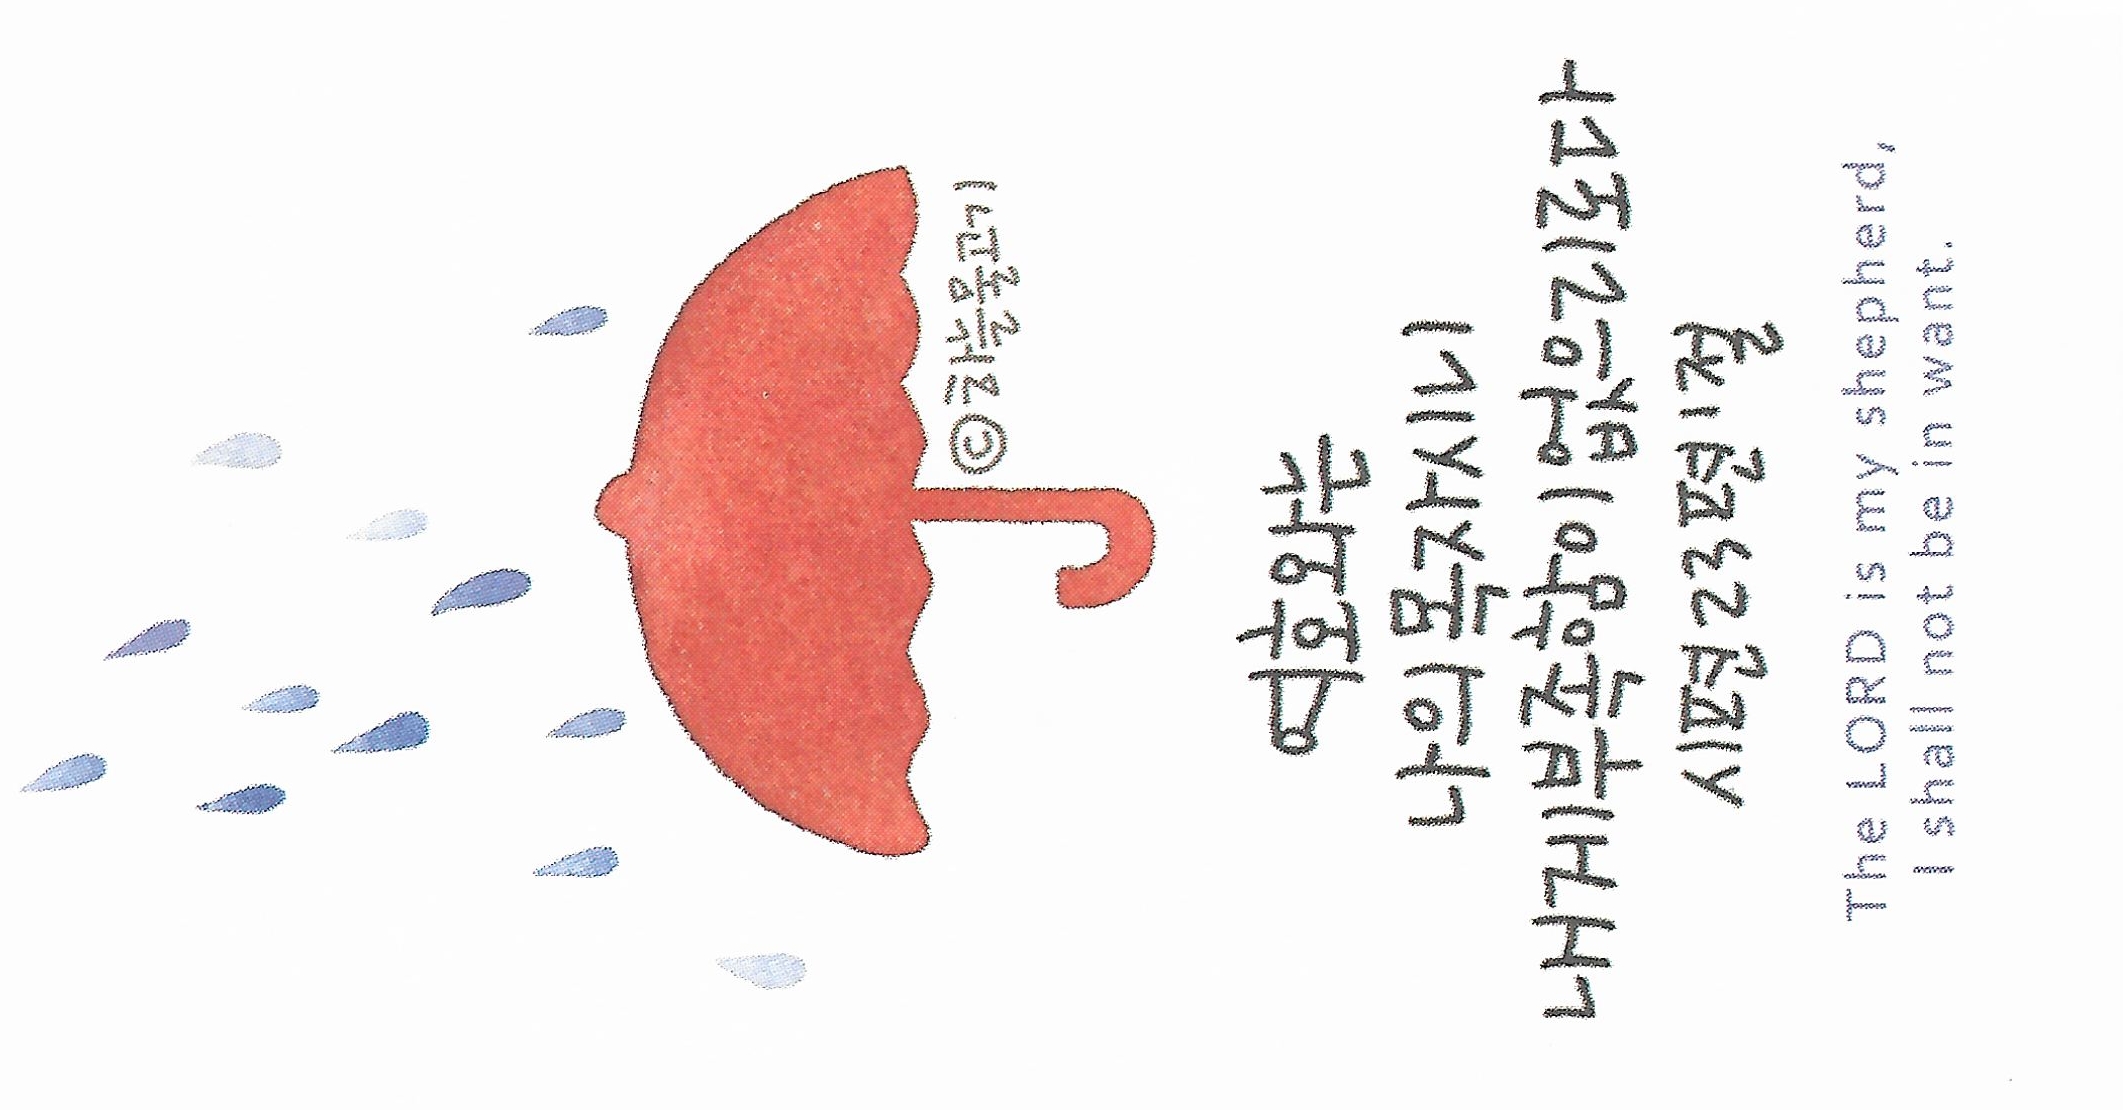 ©하늘물고기
여호와는
나의 목자시니
내게 부족함이 없으리로다
시편 23편 1절
The LORD is my shepherd,
I shall not be in want.